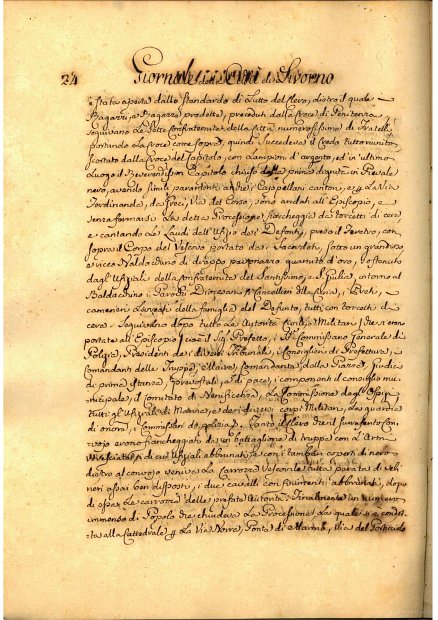 24 Giornale della Città di Livorno
è stata aperta dallo standardo di Lutto del Clero, dietro il quale
Ragazzi, e Ragazze predette, preceduti dalla Croce di Penitenza,
seguivano Le Sette Confraternite della Città numerosissime di Fratelli
portando La Croce come sopra, quindi succedeva il Credo tutto munito
scortato dalla Croce del Capitolo, con Lampioni d'argento, ed in ultimo
Luogo il Reverendissimo Capitolo chiuso dalle prime dignità in Pievale
nero, avendo simili paramenti anche i Cappellani cantori, e La Via
Ferdinanda, da Greci, del Corso, sono andati all'Episcopio, e
senza formarsi La detta Processione fiancheggiata da torcetti di cera
e cantando Le Laudi dell'Ufizio dei Defonti, preso il Feretro, con
sopra il Corpo del Vescovo portato da i Sacerdoti, sotto un grandioso
e ricco Baldacchino di drappo pavonazzo guarnito d'oro, sostenuto
dagl'Ufiziali della Confraternita del Santissimo, e S. Giulia, intorno al
Baldacchino i Parrochi Diocesani, i Cancellieri della Curia, i Preti,
camerieri Lacchè della famiglia del Defunto, tutti con torcetti di
cera. Seguivano dopo tutte Le Autorità Civili, e Militari, che si erano
portate all'Episcopio, cioè il Sig. Prefetto, il Commissario Generale di
Polizia, Presidenti dei diversi Tribunali, i Consiglieri di Prefettura,
Comandanti delle Truppe, Maire, Comandante della Piazza, Giudici
di prima istanza, e di pace, i componenti il consiglio mu-
nicipale, il comitato di Beneficenza, La Commissione degl'Ospizi
tutti gl'Ufiziali di Marina, e dei diversi corpi Militari, La guardia
di onore, i Commissari di polizia. Tanto il Clero che il suntuoso con-
vojo erano fiancheggiati da un battaglione di truppa con L'Armi
rovesciate, di cui Ufiziali abbrunati, e con i tamburi coperti di nero
dietro al convojo veniva La Carrozza Vescovile tutta parata di veli
neri assai ben disposti, i due cavalli con finimenti abbrunati, dopo
di essa Le carrozze delle prefate Autorità. Finalmente un numero
immenso di Popolo che chiudeva La Processione La quale si è condot-
ta alla Cattedrale La Via Borra, Ponte di Marmo, Via del Porticciolo